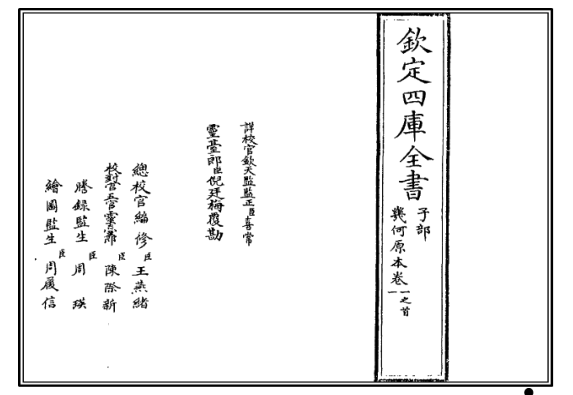 欽定四庫全書
子部
幾何原本卷一之首
詳校官欽天監監正臣喜常
靈臺郎臣倪廷梅覆勘
總校官編修臣王燕緒
校對官五官靈臺郎臣陳際新
謄錄監生臣周瑛
繪圖監生臣周履信